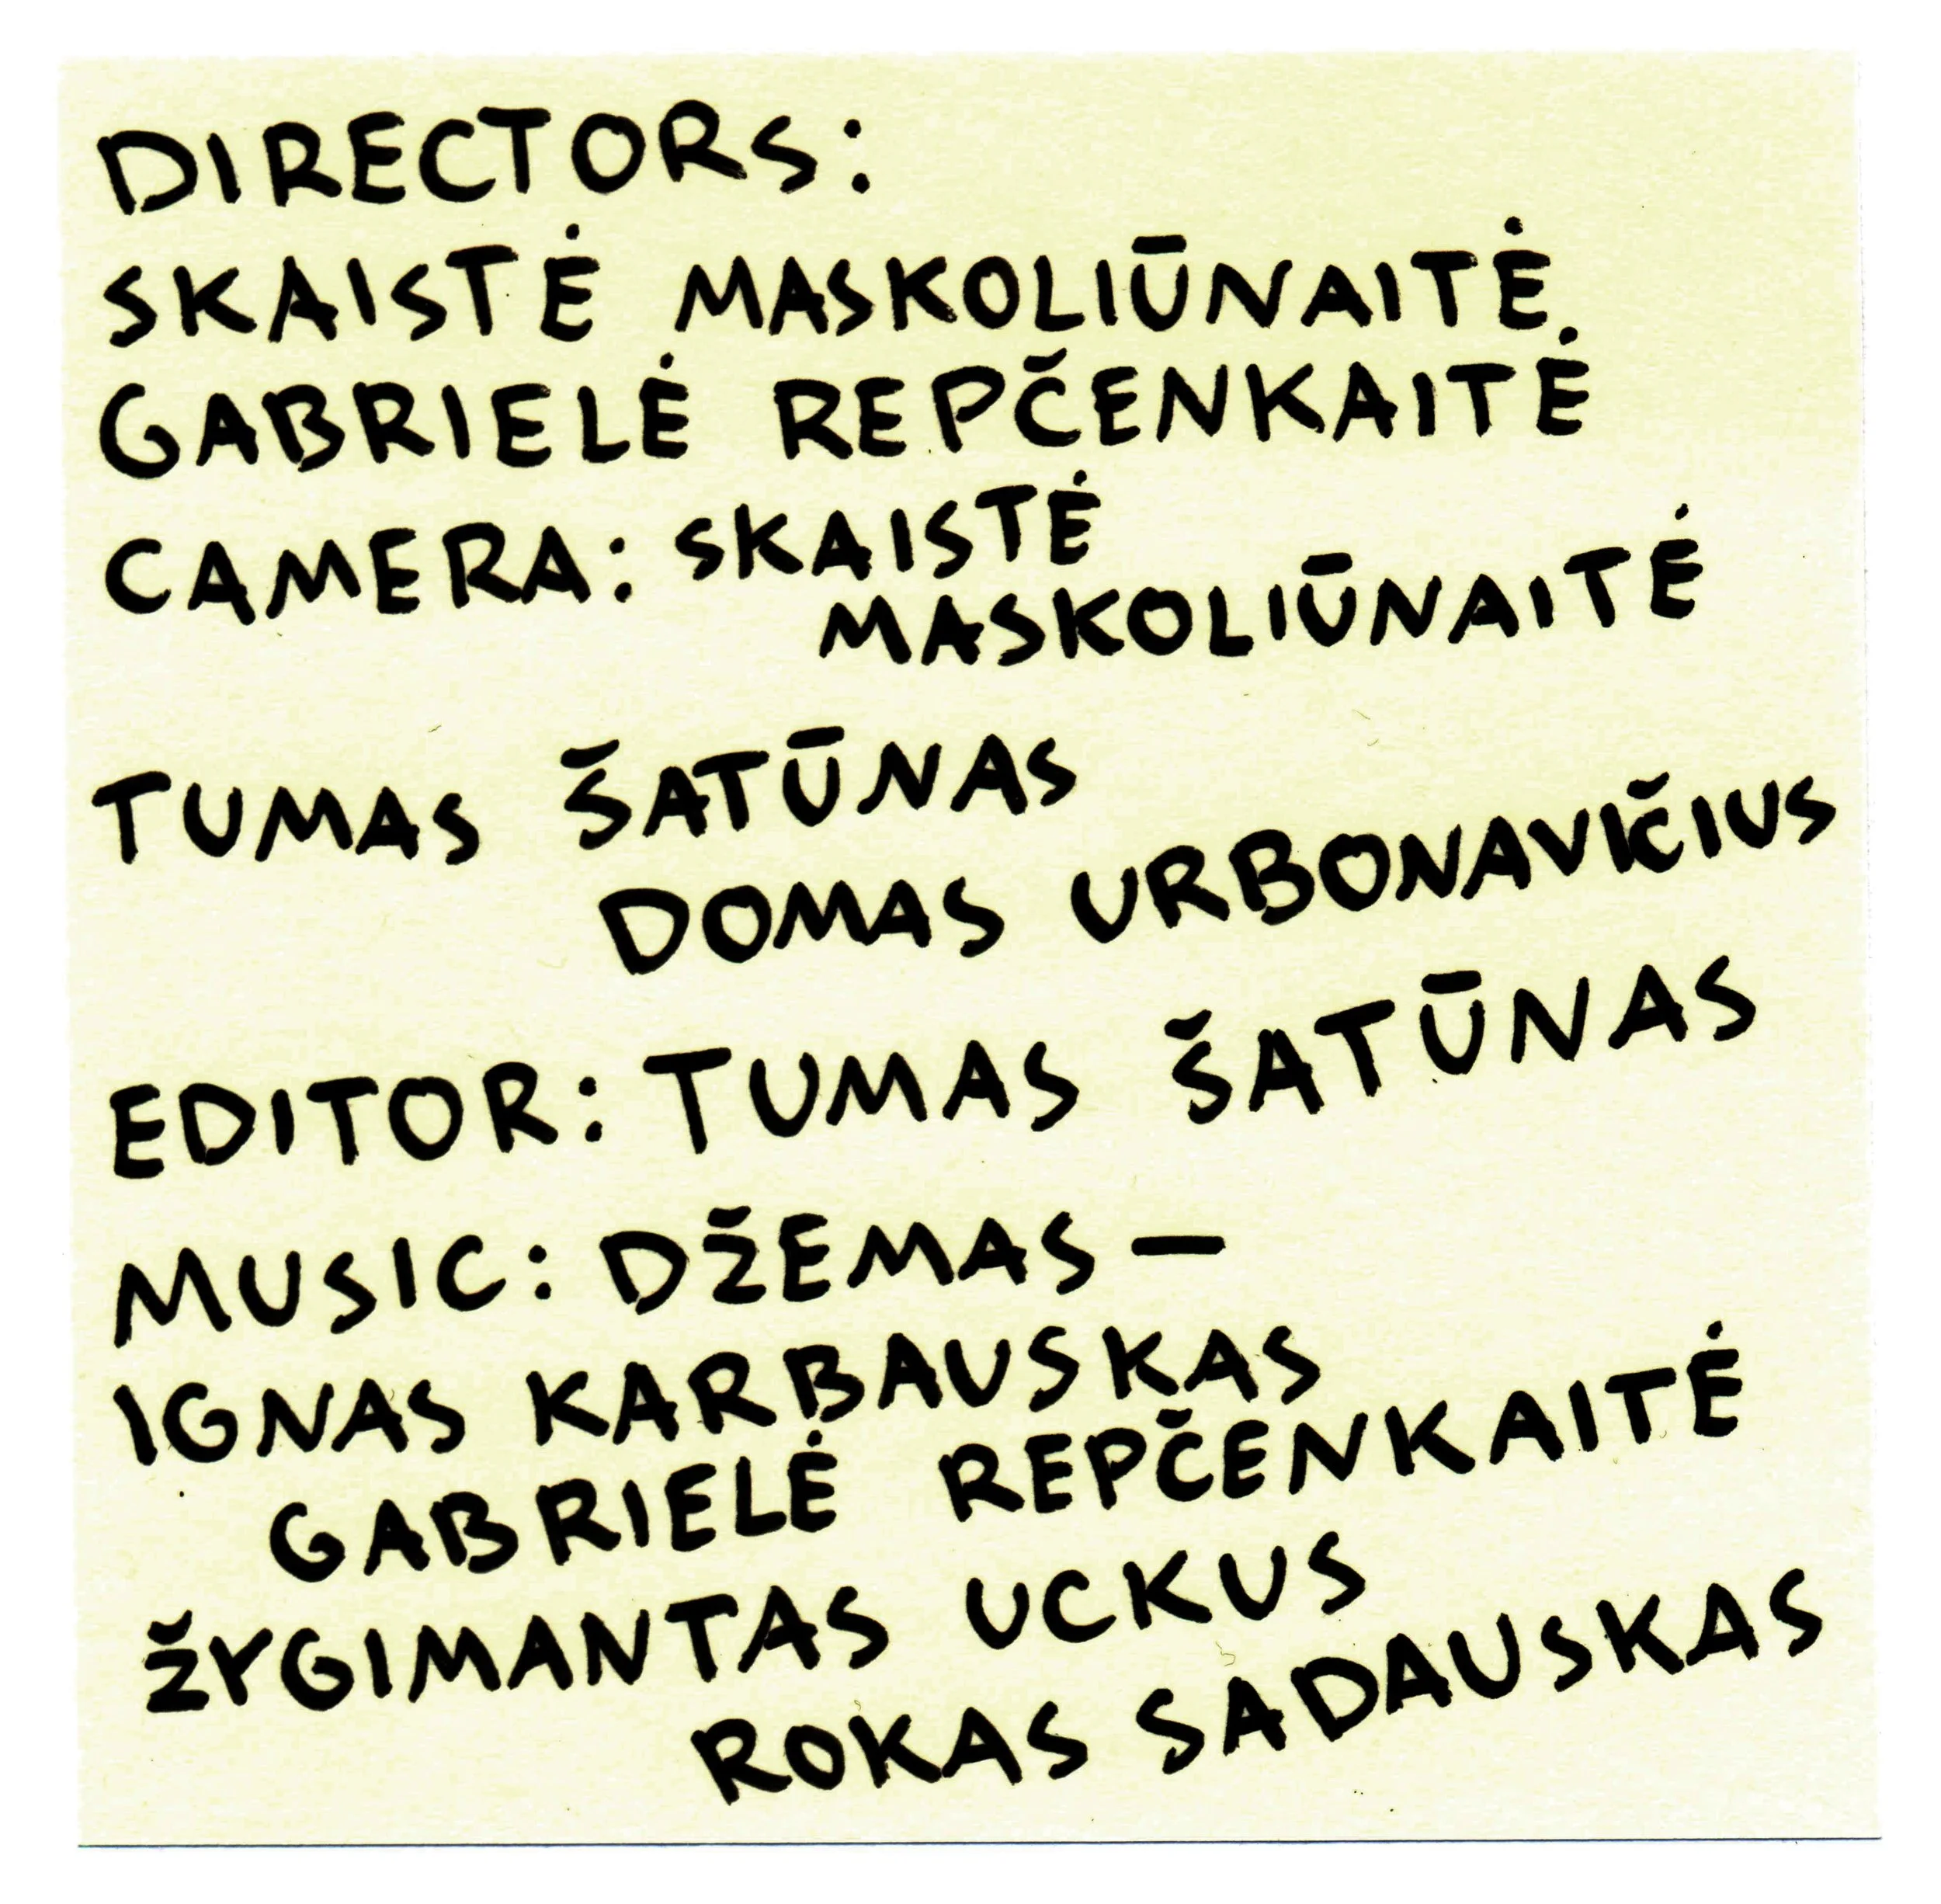 DIRECTORS:
SKAISTĖ MASKOLIŪNAITĖ
GABRIELĖ REPČENKAITĖ
CAMERA: SKAISTĖ
MASKOLIŪNAITĖ
TUMAS ŠATŪNAS
DOMAS URBONAVIČIUS
EDITOR: TUMAS ŠATŪNAS
MUSIC: DŽEMAS —
IGNAS KARBAUSKAS
GABRIELĖ REPČENKAITĖ
ŽYGIMANTAS UCKUS
ROKAS SADAUSKAS